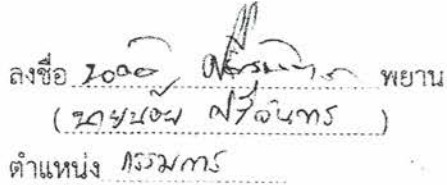 ลงชื่อ พยาน
( นายน้อย ศรีจันทร )
ตำแหน่ง กรรมการ